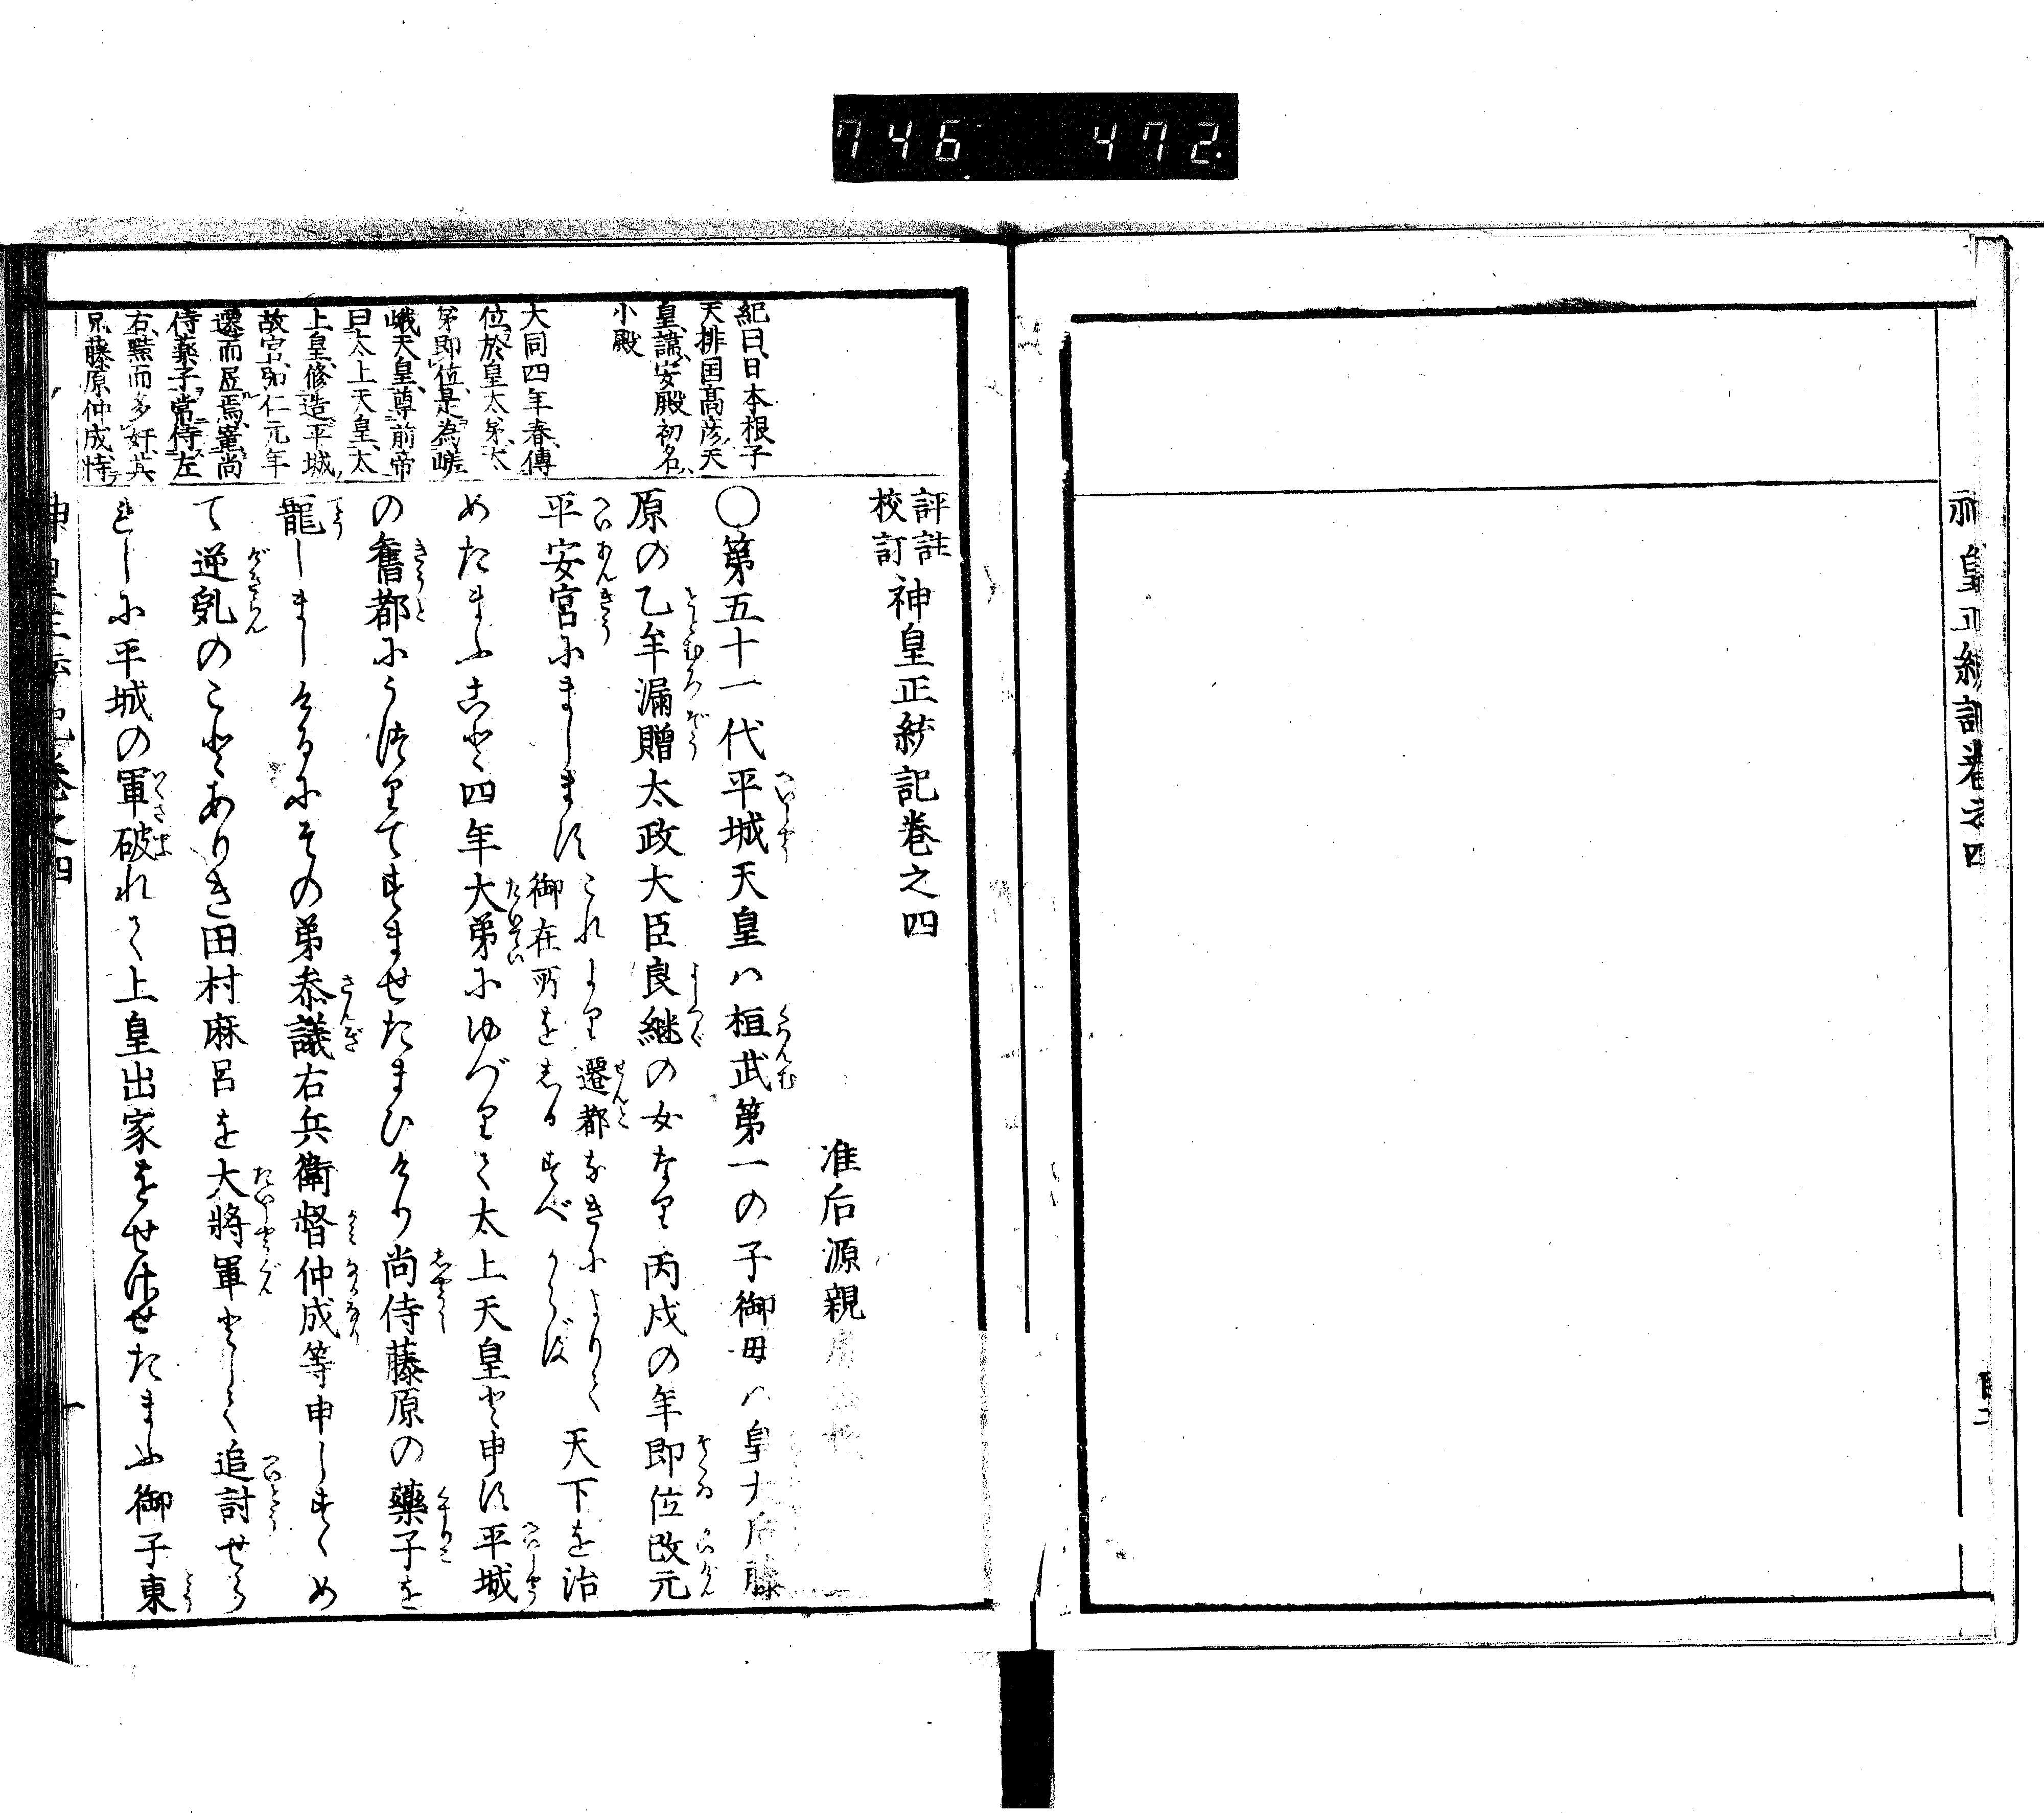 746 472.
神皇正統記卷之四
評註
校訂
神皇正統記卷之四
准后源親
〇第五十一代平城天皇ハ桓武第一の子御母ハ皇太后藤
原の乙牟漏贈太政大臣良継の女なり丙戌の年即位改元
平安宮にまします
これより遷都なきによりて
御在所をしるすべからず
天下を治
めたまふこと四年大弟にゆづりて太上天皇と申す平城
の舊都にうつりてすませたまひけり尚侍藤原の藥子を
寵しましけるにその弟叅議右兵衛督仲成等申しすゝめ
て逆乱のことありき田村麻呂を大將軍として追討せら
れしに平城の軍破れて上皇出家をせさせたまふ御子東
紀曰、日本根子
天排国高彦天
皇、諱、安殿初名、
小殿
大同四年春、傳
位、於皇太弟、太
弟即位、是為嵯
峨天皇、尊前帝
曰太上天皇、太
上皇、修造平城
故宮、弘仁元年
遷而居焉、寵尚
侍薬子、常侍左
右、黠而多奸、其
兄藤原仲成、恃
神皇正統記卷之四
一